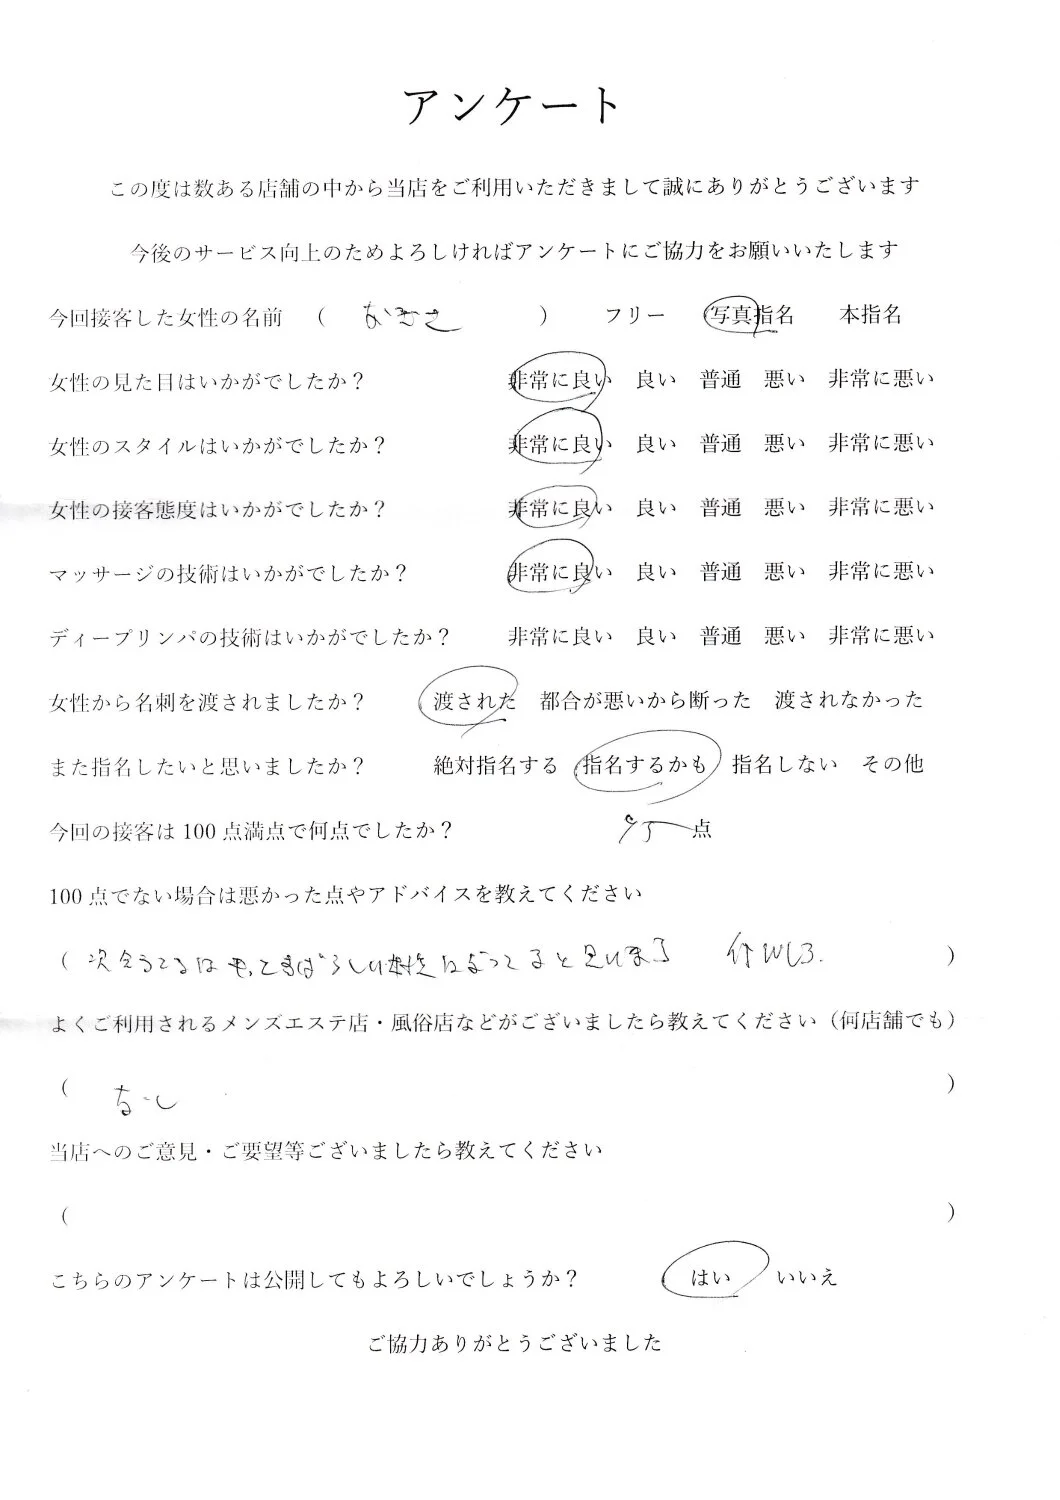 アンケート
この度は数ある店舗の中から当店をご利用いただきまして誠にありがとうございます
今後のサービス向上のためよろしければアンケートにご協力をお願いいたします
今回接客した女性の名前 ( なぎさ ) フリー 写真指名 本指名
女性の見た目はいかがでしたか? 非常に良い 良い 普通 悪い 非常に悪い
女性のスタイルはいかがでしたか? 非常に良い 良い 普通 悪い 非常に悪い
女性の接客態度はいかがでしたか? 非常に良い 良い 普通 悪い 非常に悪い
マッサージの技術はいかがでしたか? 非常に良い 良い 普通 悪い 非常に悪い
ディープリンパの技術はいかがでしたか? 非常に良い 良い 普通 悪い 非常に悪い
女性から名刺を渡されましたか? 渡された 都合が悪いから断った 渡されなかった
また指名したいと思いましたか? 絶対指名する 指名するかも 指名しない その他
今回の接客は 100 点満点で何点でしたか? 95 点
100 点でない場合は悪かった点やアドバイスを教えてください
( 次会うてるはもっとすばらしい女性になってると思います )
よくご利用されるメンズエステ店・風俗店などがございましたら教えてください(何店舗でも)
( なし )
当店へのご意見・ご要望等ございましたら教えてください
( )
こちらのアンケートは公開してもよろしいでしょうか? はい いいえ
ご協力ありがとうございました